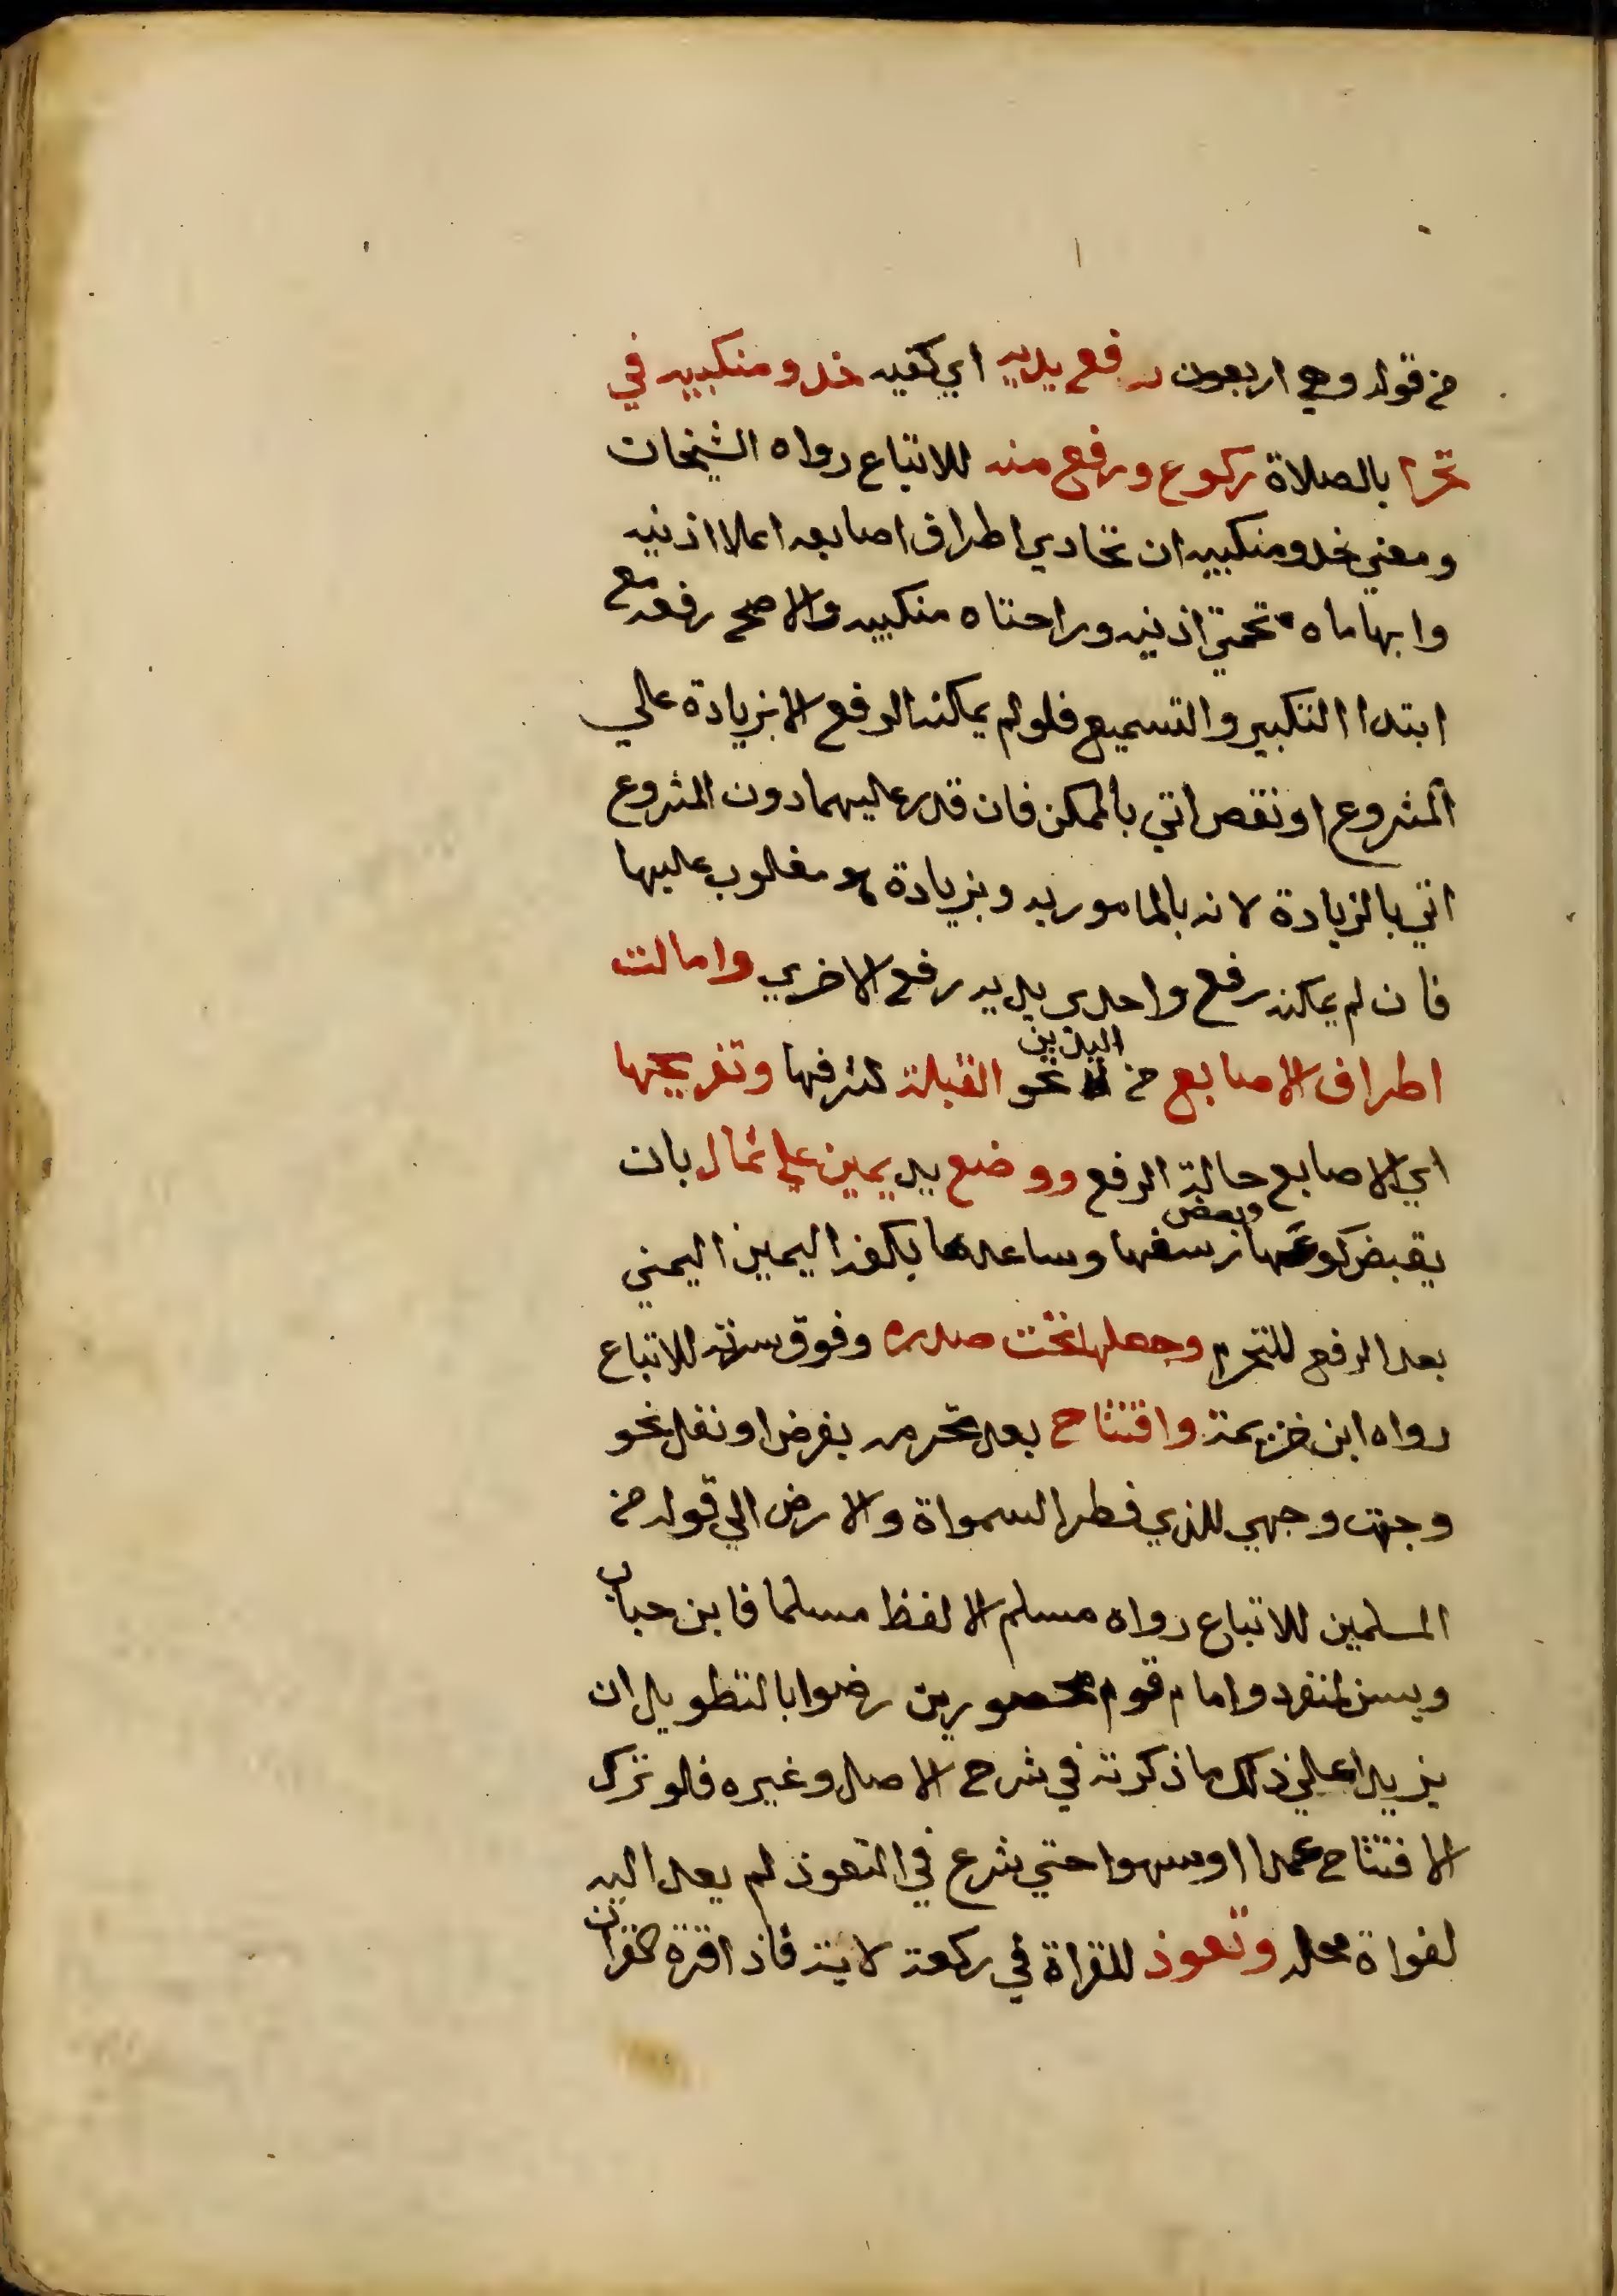 من قوله وهي اربعون رفع يديه اي كفيه خذو منكبيه في
تحرم بالصلاة ركوع ورفع منه للاتباع رواه الشيخان
ومعني خذو منكبيه ان تحادي اطراف اصابعه اعلا اذنيه
وابهاماه تحمتي اذنيه وراحتاه منكبيه والاصح رفعه مع
ابتدا التكبير والتسميع فلو لم يمكنه الرفع الا بزيادة علي
المشروع او نقص اتي بالممكن فان قدر عليهما دون المشروع
اتي بالزيادة لانه بالمامور به وبزيادة هو مغلوب عليها
فان لم يمكنه رفع واحدي يديه رفع الاخري وامالت
اطراف الاصابع من اليدين نحو القبلة لشرفها وتفريجها
اي الاصابع حالة الرفع ووضع يد يمين علي شمال بان
يقبض كوعها وبعض رسغها وساعدها بكفه اليمين اليمني
بعد الرفع للتحرم وجعلها تحت صدره وفوق سرته للاتباع
رواه ابن خزيمة وافتتاح بعد تحرمه بفرض او نفل نحو
وجهت وجهي للذي فطر السمواة والارض الي قوله من
المسلمين للاتباع رواه مسلم الا لفظ مسلما فابن حبان
ويسن لمنفرد وامام قوم محصورين رضوا بالتطويل ان
يزيدا علي ذلك ما ذكرته في شرح الاصل وغيره فلو ترك
الافتتاح عمدا او سهوا حتي شرع في التعوذ لم يعد اليه
لفواة محله وتعوذ للقراة في ركعة لاية فاذا قرة القران